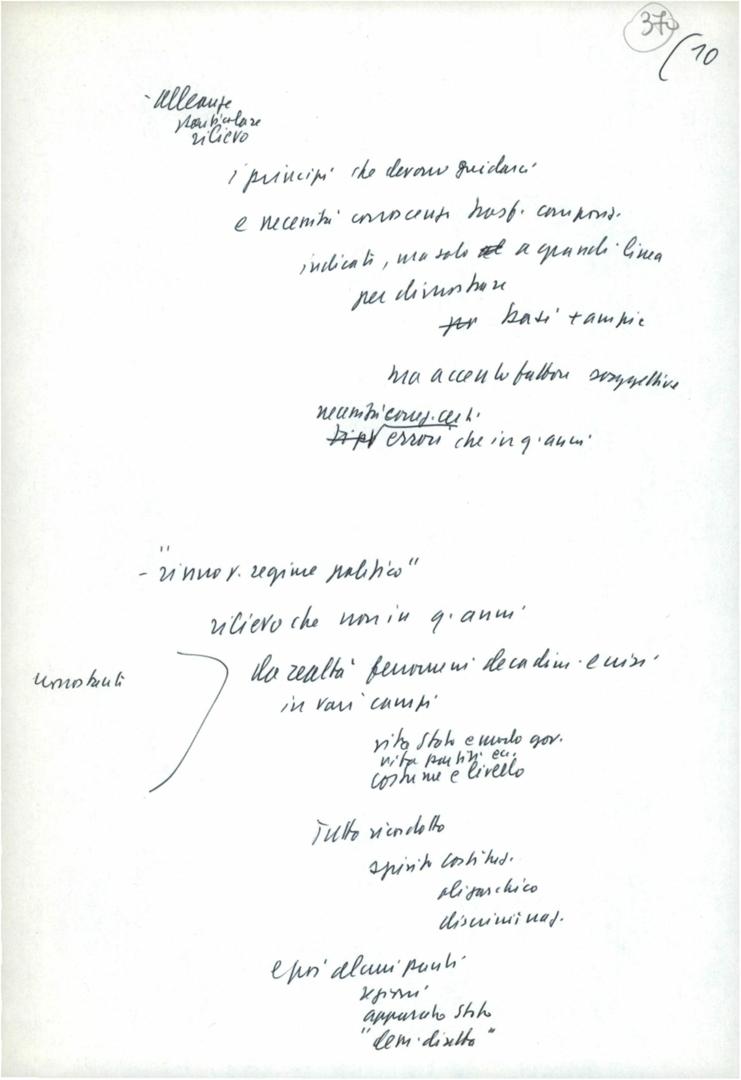 37
(10
- alleanze
particolare
rilievo
i principi che devono guidarci
e necessità conoscenza trasf. compos.
indicati, ma solo a grandi linea
per dimostrare
basi + ampie
ma accento fattore soggettivo
necessità
errori che in q. anni
- "rinnov. regime politico"
rilievo che non in q. anni
nonostanti
da realtà fenomeni decadim. e crisi
in vari campi
vita Stato e modo gov.
vita partiti ecc.
costume e livello
Tutto ricondotto
spirito costituz.
oligarchico
discriminaz.
e poi alcuni punti
regioni
apparato Stato
"dem. diretta"